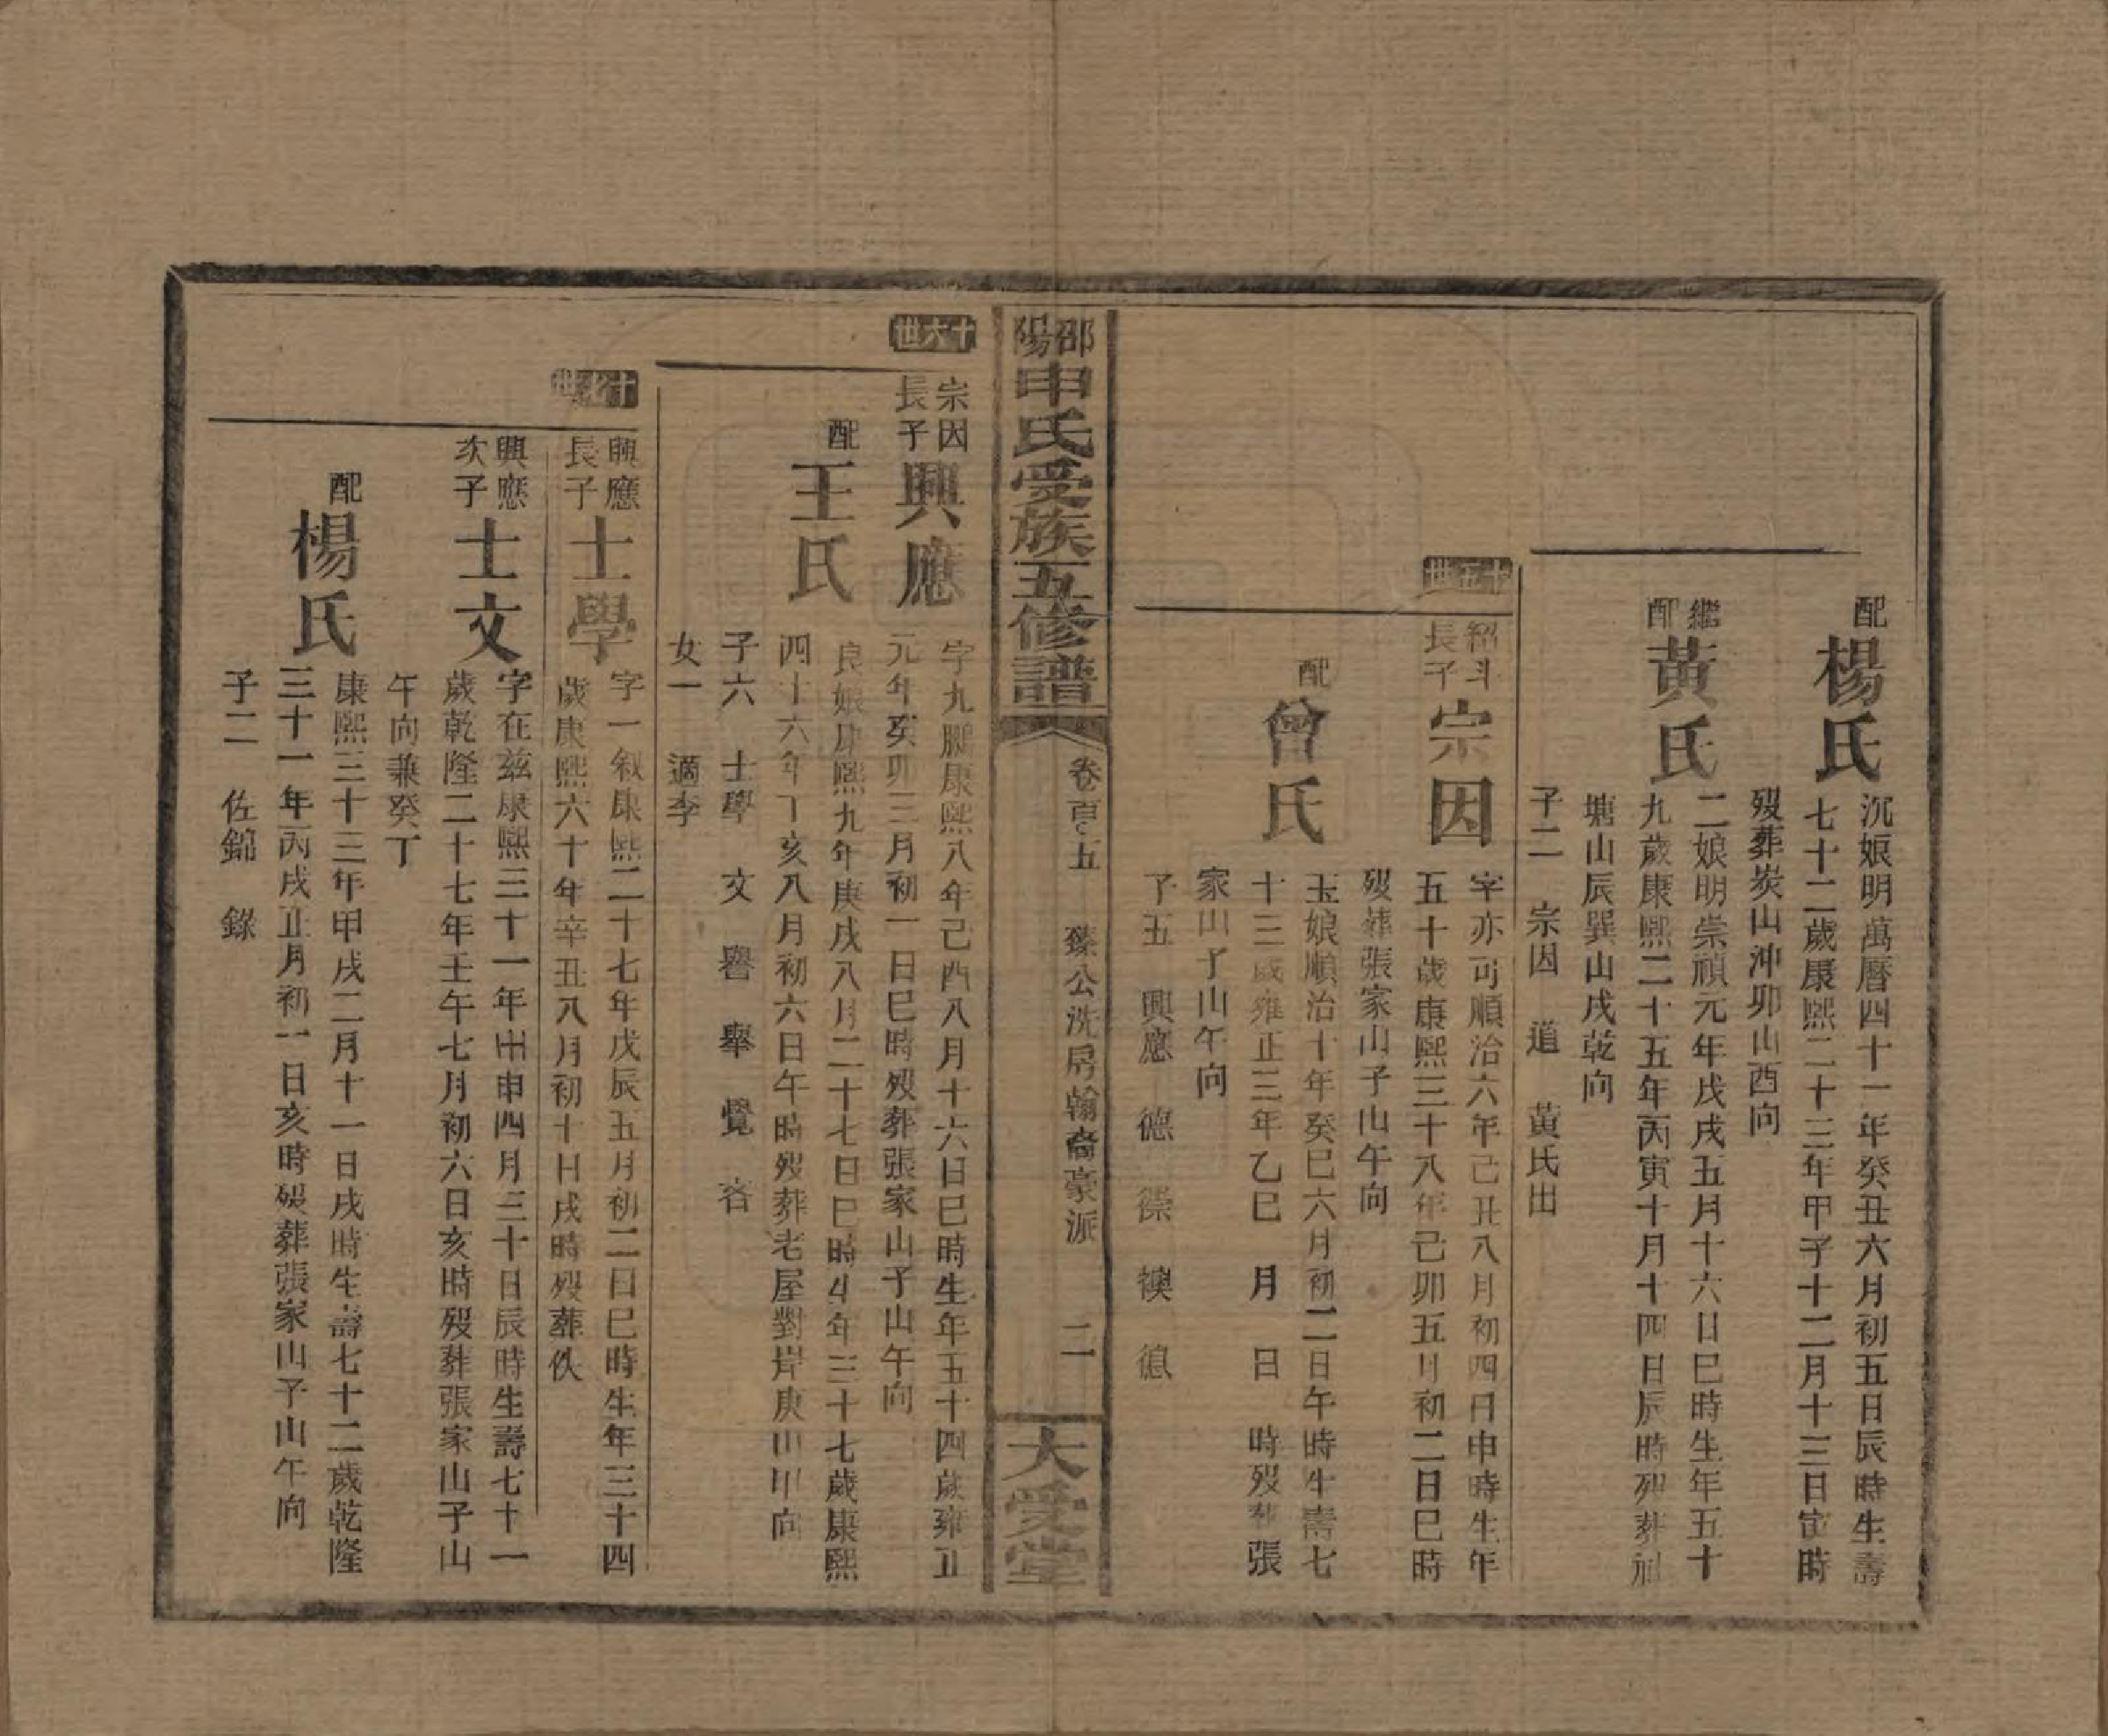 配
楊氏
沉娘明萬曆四十一年癸丑六月初五日辰時生壽
七十二歲康熙二十三年甲子十二月十三日寅時
歿葬炭山沖卯山酉向
繼配
黃氏
二娘明崇禎元年戊戌五月十六日巳時生年五十
九歲康熙二十五年丙寅十月十四日辰時歿葬祖
塘山辰巽山戌乾向
子二 宗因 道 黃氏出
十五世
紹斗長子
宗因
字亦可順治六年己丑八月初四日申時生年
五十歲康熙三十八年己卯五月初二日巳時
歿葬張家山子山午向
配
曾氏
玉娘順治十年癸巳六月初二日午時生壽七
十三歲雍正三年乙巳 月 日 時歿葬張
家山子山午向
子五 興應 德
邵陽申氏受族五修譜
卷百五 臻公洗房翰裔豪派 二
大受堂
十六世
宗因長子
興應
字九鵬康熙八年己酉八月十六日巳時生年五十四歲雍正
元年癸卯三月初一日巳時歿葬張家山子山午向
配
王氏
良娘康熙九年庚戌八月二十七日巳時生年三十七歲康熙
四十六年丁亥八月初六日午時歿葬老屋對岸庚山甲向
子六 士學 文 譽 舉 覺 吝
女一 適李
十七世
興應長子
士學
字一敘康熙二十七年戊辰五月初二日巳時生年三十四
歲康熙六十年辛丑八月初十日戌時歿葬佚
興應次子
士文
字在茲康熙三十一年申四月三十日辰時生壽七十一
歲乾隆二十七年壬午七月初六日亥時歿葬張家山子山
午向兼癸丁
配
楊氏
康熙三十三年甲戌二月十一日戌時生壽七十二歲乾隆
三十一年丙戌正月初一日亥時歿葬張家山子山午向
子二 佐錦 錄